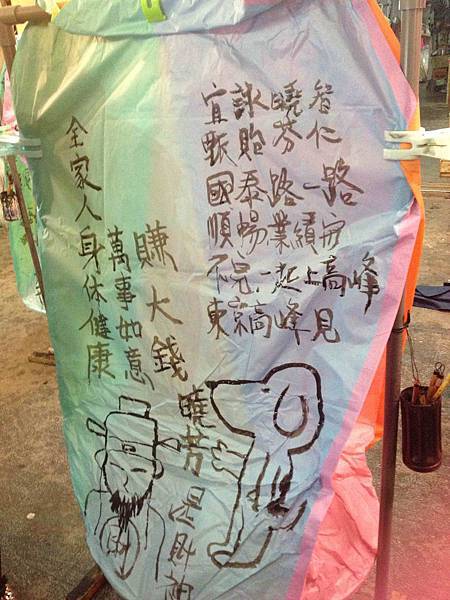 智仁
曉芬
詠貽
宜甄
國泰路一路
順暢業績
不完一起上高峰
東京高峰見
賺大錢
萬事如意
全家人身体健康
曉芳是財神